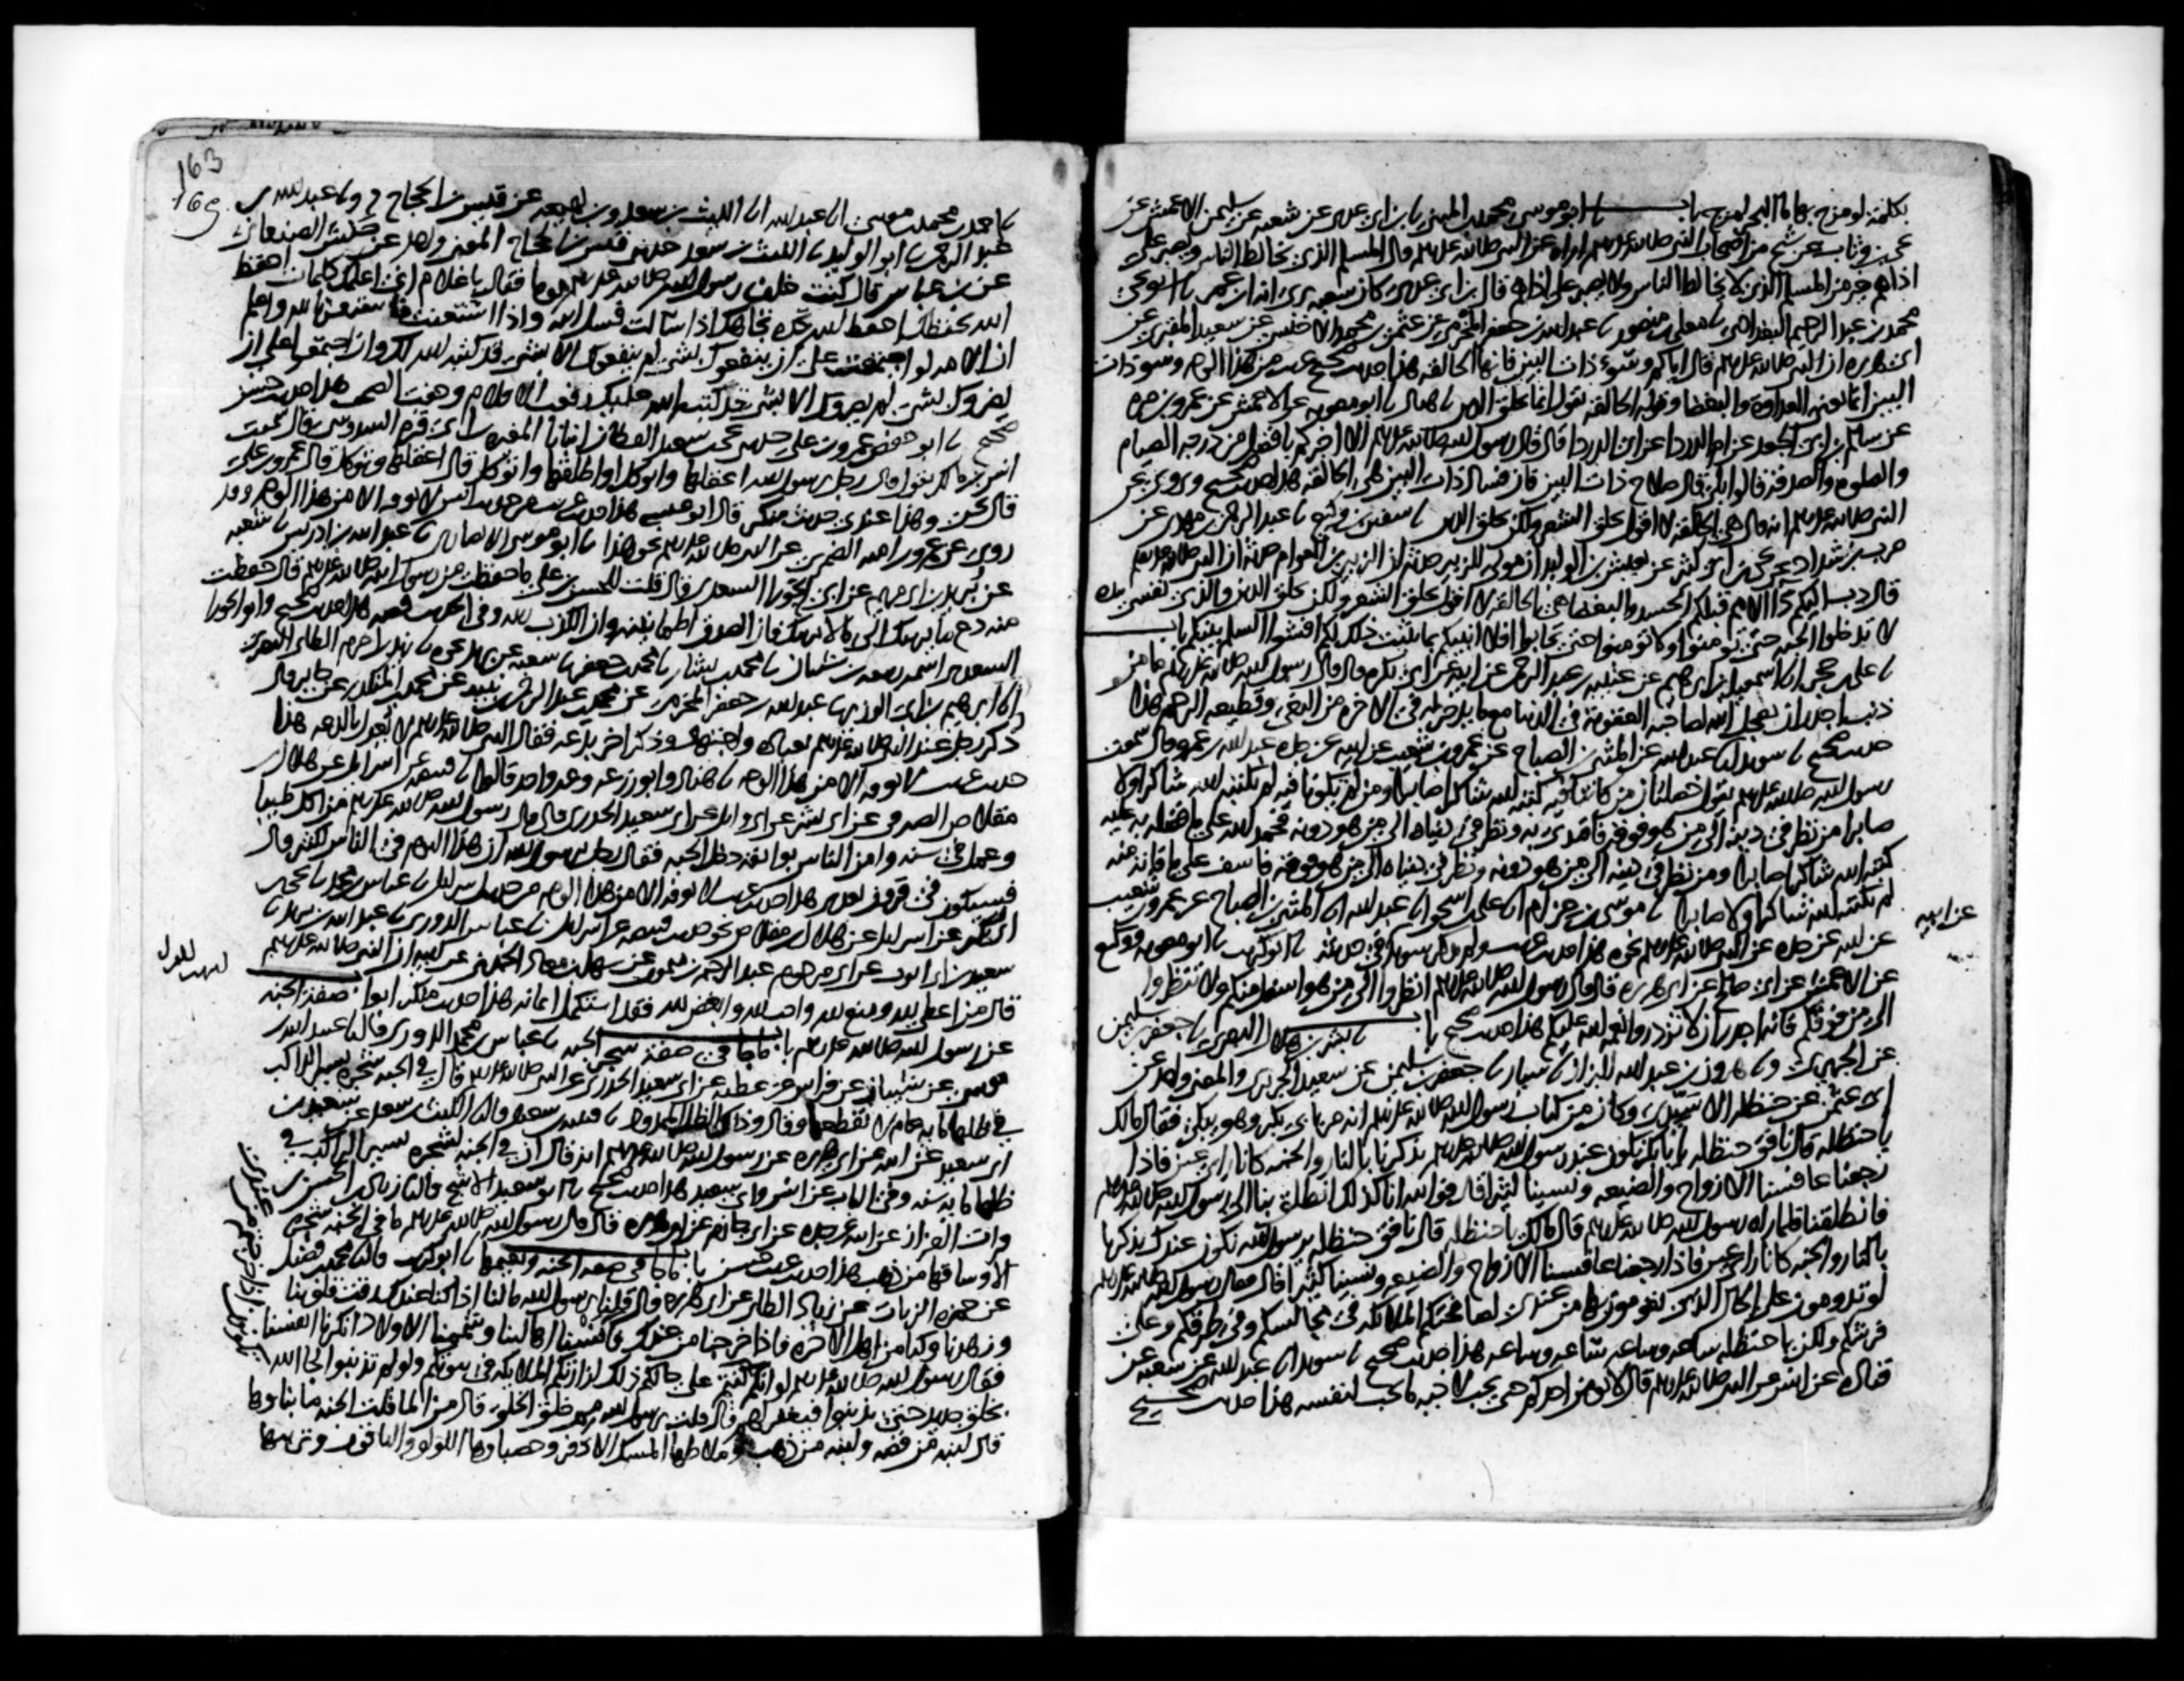 بكلمة لو مزج بها ماء البحر لمزج باب نا ابو موسى محمد بن المثنى نا بن ابي عدي عن شعبة عن سليمن الاعمش عن
يحيى بن وثاب عن شيخ من اصحاب النبي صلى الله عليه وسلم اراه عن النبي صلى الله عليه وسلم قال المسلم الذي يخالط الناس ويصبر على
اذاهم خير من المسلم الذي لا يخالط الناس ولا يصبر على اذاهم قال بن ابي عدي كان شعبة يرى انه ابن عمر نا ابو يحيى
محمد بن عبد الرحيم البغدادي نا معلى بن منصور نا عبد الله بن جعفر المخرمي عن عثمن بن محمد الاخنسي عن سعيد المقبري عن
ابي هريرة ان النبي صلى الله عليه وسلم قال اياكم وسوء ذات البين فانها الحالقة هذا حديث صحيح غريب من هذا الوجه وسوء ذات
البين انما يعني العداوة والبغضا وقوله الحالقة يقول انها تحلق الدين نا هناد نا ابو معوية عن الاعمش عن عمرو بن مرة
عن سالم بن ابي الجعد عن ام الدردا عن ابي الدردا قال قال رسول الله صلى الله عليه وسلم الا اخبركم بافضل من درجة الصيام
والصلوة والصدقة قالوا بلى قال صلاح ذات البين فان فساد ذات البين هي الحالقة هذا حديث صحيح ويروى عن
النبي صلى الله عليه وسلم انه قال هي الحالقة لا اقول تحلق الشعر ولكن تحلق الدين نا سفين بن وكيع نا عبد الرحمن بن مهدي عن
حرب بن شداد عن يحيى بن ابي كثير عن يعيش بن الوليد ان مولى للزبير حدثه ان الزبير بن العوام حدثه ان النبي صلى الله عليه وسلم
قال دب اليكم داء الامم قبلكم الحسد والبغضا هي الحالقة لا اقول تحلق الشعر ولكن تحلق الدين والذي نفسي بيده
لا تدخلوا الجنة حتى تومنوا ولا تومنوا حتى تحابوا افلا انبيكم بما يثبت ذلك لكم افشوا السلم بينكم باب
نا علي بن حجر انا اسمعيل بن ابرهيم عن عيينة بن عبد الرحمن عن ابيه عن ابي بكرة قال قال رسول الله صلى الله عليه وسلم ما من
ذنب اجدر ان يعجل الله لصاحبه العقوبة في الدنيا مع ما يدخر له في الاخرة من البغي وقطيعة الرحم هذا
حديث صحيح نا سويد انا عبد الله عن المثنى بن الصباح عن عمرو بن شعيب عن ابيه عن جده عبد الله بن عمرو قال سمعت
رسول الله صلى الله عليه وسلم يقول خصلتان من كانتا فيه كتبه الله شاكرا صابرا ومن لم تكونا فيه لم يكتبه الله شاكرا ولا
صابرا من نظر في دينه الى من هو فوقه فاقتدى به ونظر في دنياه الى من هو دونه فحمد الله على ما فضله به عليه
كتبه الله شاكرا صابرا ومن نظر في دينه الى من هو دونه ونظر في دنياه الى من هو فوقه فاسف على ما فاته منه
لم يكتبه الله شاكرا ولا صابرا نا موسى بن حزام انا علي بن اسحق انا عبد الله انا المثنى بن الصباح عن عمرو بن شعيب
عن ابيه عن جده عن النبي صلى الله عليه وسلم نحوه هذا حديث غريب ولم يذكر سويد في حديثه نا ابو كريب نا ابو معوية ووكيع
عن ابيه
عن الاعمش عن ابي صالح عن ابي هريرة قال قال رسول الله صلى الله عليه وسلم انظروا الى من هو اسفل منكم ولا تنظروا
الى من فوقكم فانه اجدر ان لا تزدروا نعمة الله عليكم هذا حديث صحيح باب نا بشر بن هلال البصري نا جعفر بن سليمن
عن الجريري ونا هرون بن عبد الله البزاز نا سيار نا جعفر بن سليمن عن سعيد الجريري والمعنى واحد عن
ابي عثمن عن حنظلة الاسيدي وكان من كتاب رسول الله صلى الله عليه وسلم انه مر بابي بكر وهو يبكي فقال مالك
يا حنظلة قال نافق حنظلة يا بابكر نكون عند رسول الله صلى الله عليه وسلم يذكرنا بالنار والجنة كانا راي عين فاذا
رجعنا عافسنا الازواج والضيعة ونسينا كثيرا قال فوالله انا كذلك انطلق بنا الى رسول الله صلى الله عليه وسلم
فانطلقنا فلما راه رسول الله صلى الله عليه وسلم قال مالك يا حنظلة قال نافق حنظلة يرسول الله نكون عندك تذكرنا
بالنار والجنة كانا راي عين فاذا رجعنا عافسنا الازواج والضيعة ونسينا كثيرا قال فقال رسول الله صلى الله عليه وسلم
لو تدومون على الحال الذي تقومون بها من عندي لصافحتكم الملائكة في مجالسكم وفي طرقكم وعلى
فرشكم ولكن يا حنظلة ساعة وساعة ساعة وساعة هذا حديث صحيح نا سويد انا عبد الله عن شعبة عن
قتادة عن انس عن النبي صلى الله عليه وسلم قال لا يومن احدكم حتى يحب لاخيه ما يحب لنفسه هذا حديث صحيح
163
نا احمد بن محمد بن موسى انا عبد الله انا الليث بن سعد وبن لهيعة عن قيس بن الحجاج ح ونا عبد الله بن
عبد الرحمن نا ابو الوليد نا الليث بن سعد حدثني قيس بن الحجاج المعنى واحد عن حنش الصنعاني
عن بن عباس قال كنت خلف رسول الله صلى الله عليه وسلم يوما فقال يا غلام اني اعلمك كلمات احفظ
الله يحفظك احفظ الله تجده تجاهك اذا سالت فسل الله واذا استعنت فاستعن بالله واعلم
ان الامة لو اجتمعت على ان ينفعوك بشي لم ينفعوك الا بشي قد كتبه الله لك وان اجتمعوا على ان
يضروك بشي لم يضروك الا بشي قد كتبه الله عليك رفعت الاقلام وجفت الصحف هذا حديث حسن
صحيح نا ابو حفص عمرو بن علي نا يحيى بن سعيد القطان نا المغيرة بن ابي قرة السدوسي قال سمعت
انس بن مالك يقول قال رجل يرسول الله اعقلها واتوكل او اطلقها واتوكل قال اعقلها وتوكل قال عمرو بن علي
قال يحيى وهذا عندي حديث منكر قال ابو عيسى هذا حديث غريب من حديث انس لا نعرفه الا من هذا الوجه وقد
روي عن عمرو بن امية الضمري عن النبي صلى الله عليه وسلم نحو هذا نا ابو موسى الانصاري نا عبد الله بن ادريس نا شعبة
عن بريد بن ابي مريم عن ابي الحورا السعدي قال قلت للحسن بن علي ما حفظت من رسول الله صلى الله عليه وسلم قال حفظت
منه دع ما يريبك الى ما لا يريبك فان الصدق طمانينة وان الكذب ريبة وفي الحديث قصة هذا حديث صحيح وابو الحورا
السعدي اسمه ربيعة بن شيبان نا محمد بن بشار نا محمد بن جعفر نا شعبة عن بريد نحوه نا زيد بن اخزم الطائي البصري
نا ابرهيم بن ابي الوزير نا عبد الله بن جعفر المخرمي عن محمد بن عبد الرحمن بن نبيه عن محمد بن المنكدر عن جابر قال
ذكر رجل عند النبي صلى الله عليه وسلم بعبادة واجتهاد وذكر اخر برعة فقال النبي صلى الله عليه وسلم لا يعدل بالرعة هذا
حديث غريب لا نعرفه الا من هذا الوجه نا هناد وابو زرعة وغير واحد قالوا نا قبيصة عن اسرايل عن هلال بن
مقلاص الصيرفي عن ابي بشر عن ابي وايل عن ابي سعيد الخدري قال قال رسول الله صلى الله عليه وسلم من اكل طيبا
وعمل في سنة وامن الناس بوايقه دخل الجنة فقال رجل يرسول الله ان هذا اليوم في الناس لكثير قال
فسيكون في قرون بعدي هذا حديث غريب لا نعرفه الا من هذا الوجه من حديث اسرايل نا عباس بن محمد نا يحيى بن
ابي بكير عن اسرايل عن هلال بن مقلاص نحو حديث قبيصة عن اسرايل نا عباس الدوري نا عبد الله بن يزيد نا
سعيد بن ابي ايوب عن ابي مرحوم عبد الرحيم بن ميمون عن سهل بن معاذ الجهني عن ابيه ان النبي صلى الله عليه وسلم
قال من اعطى لله ومنع لله واحب لله وابغض لله فقد استكمل ايمانه هذا حديث منكر ابواب صفة الجنة
عن رسول الله صلى الله عليه وسلم باب ما جا في صفة شجر الجنة نا عباس بن محمد الدوري قال نا عبيد الله بن
موسى عن شيبان عن فراس عن عطية عن ابي سعيد الخدري عن النبي صلى الله عليه وسلم قال في الجنة شجرة يسير الراكب
في ظلها ماية عام لا يقطعها وقال وذلك الظل الممدود نا قتيبة بن سعيد قال نا الليث بن سعد عن سعيد بن
ابي سعيد عن ابيه عن ابي هريرة عن رسول الله صلى الله عليه وسلم انه قال ان في الجنة لشجرة يسير الراكب في
ظلها ماية سنة وفي الباب عن انس وابي سعيد هذا حديث صحيح نا ابو سعيد الاشج قال نا زياد بن الحسن بن
فرات القزاز عن ابيه عن جده عن ابي حازم عن ابي هريرة قال قال رسول الله صلى الله عليه وسلم ما في الجنة شجرة
الا وساقها من ذهب هذا حديث غريب حسن باب ما جا في صفة الجنة ونعيمها نا ابو كريب قال نا محمد بن فضيل
عن حمزة الزيات عن زياد الطائي عن ابي هريرة قال قلنا يرسول الله مالنا اذا كنا عندك رقت قلوبنا
وزهدنا وكنا من اهل الاخرة فاذا خرجنا من عندك فانسنا اهالينا وشممنا الاولاد انكرنا انفسنا
فقال رسول الله صلى الله عليه وسلم لو انكم كنتم على حالكم ذلك لزارتكم الملايكة في بيوتكم ولو لم تذنبوا لجا الله
تكونون اذا خرجتم من عندي
بخلق جديد حتى يذنبوا فيغفر لهم قال قلت يرسول الله مم خلق الخلق قال من الما قلت الجنة ما بناوها
قال لبنة من فضة ولبنة من ذهب وملاطها المسك الاذفر وحصباوها اللولو والياقوت وتربتها